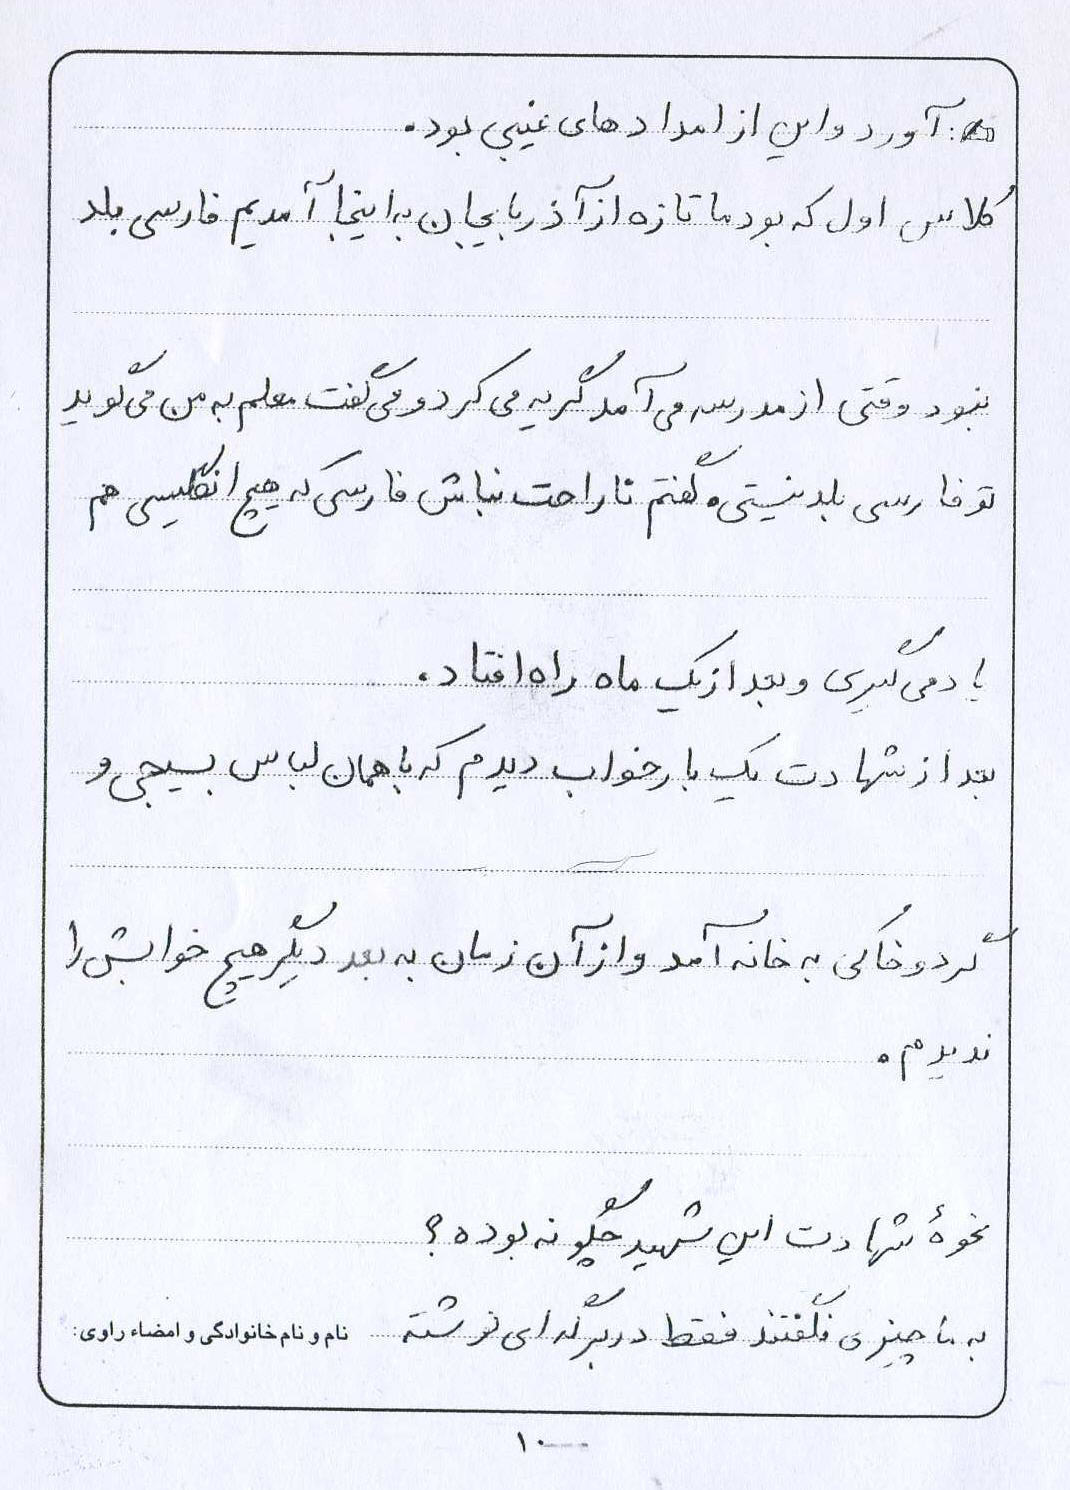 آورد و این از امدادهای غیبی بود.
کلاس اول که بود ما تازه از آذربایجان به اینجا آمدیم فارسی بلد
نبود وقتی از مدرسه می آمد گریه می کرد و می گفت معلم به من می گوید
تو فارسی بلد نیستی. گفتم ناراحت نباش فارسی که هیچ انگلیسی هم
یاد می گیری و بعد از یک ماه راه افتاد.
بعد از شهادت یک بار خواب دیدم که با همان لباس بسیجی و
گرد و خاکی به خانه آمد و از آن زمان به بعد دیگر هیچ خوابش را
ندیدم.
نحوهٔ شهادت این شهید چگونه بوده؟
به ما چیزی نگفتند فقط در برگه ای نوشته
نام و نام خانوادگی و امضاء راوی:
۱۰